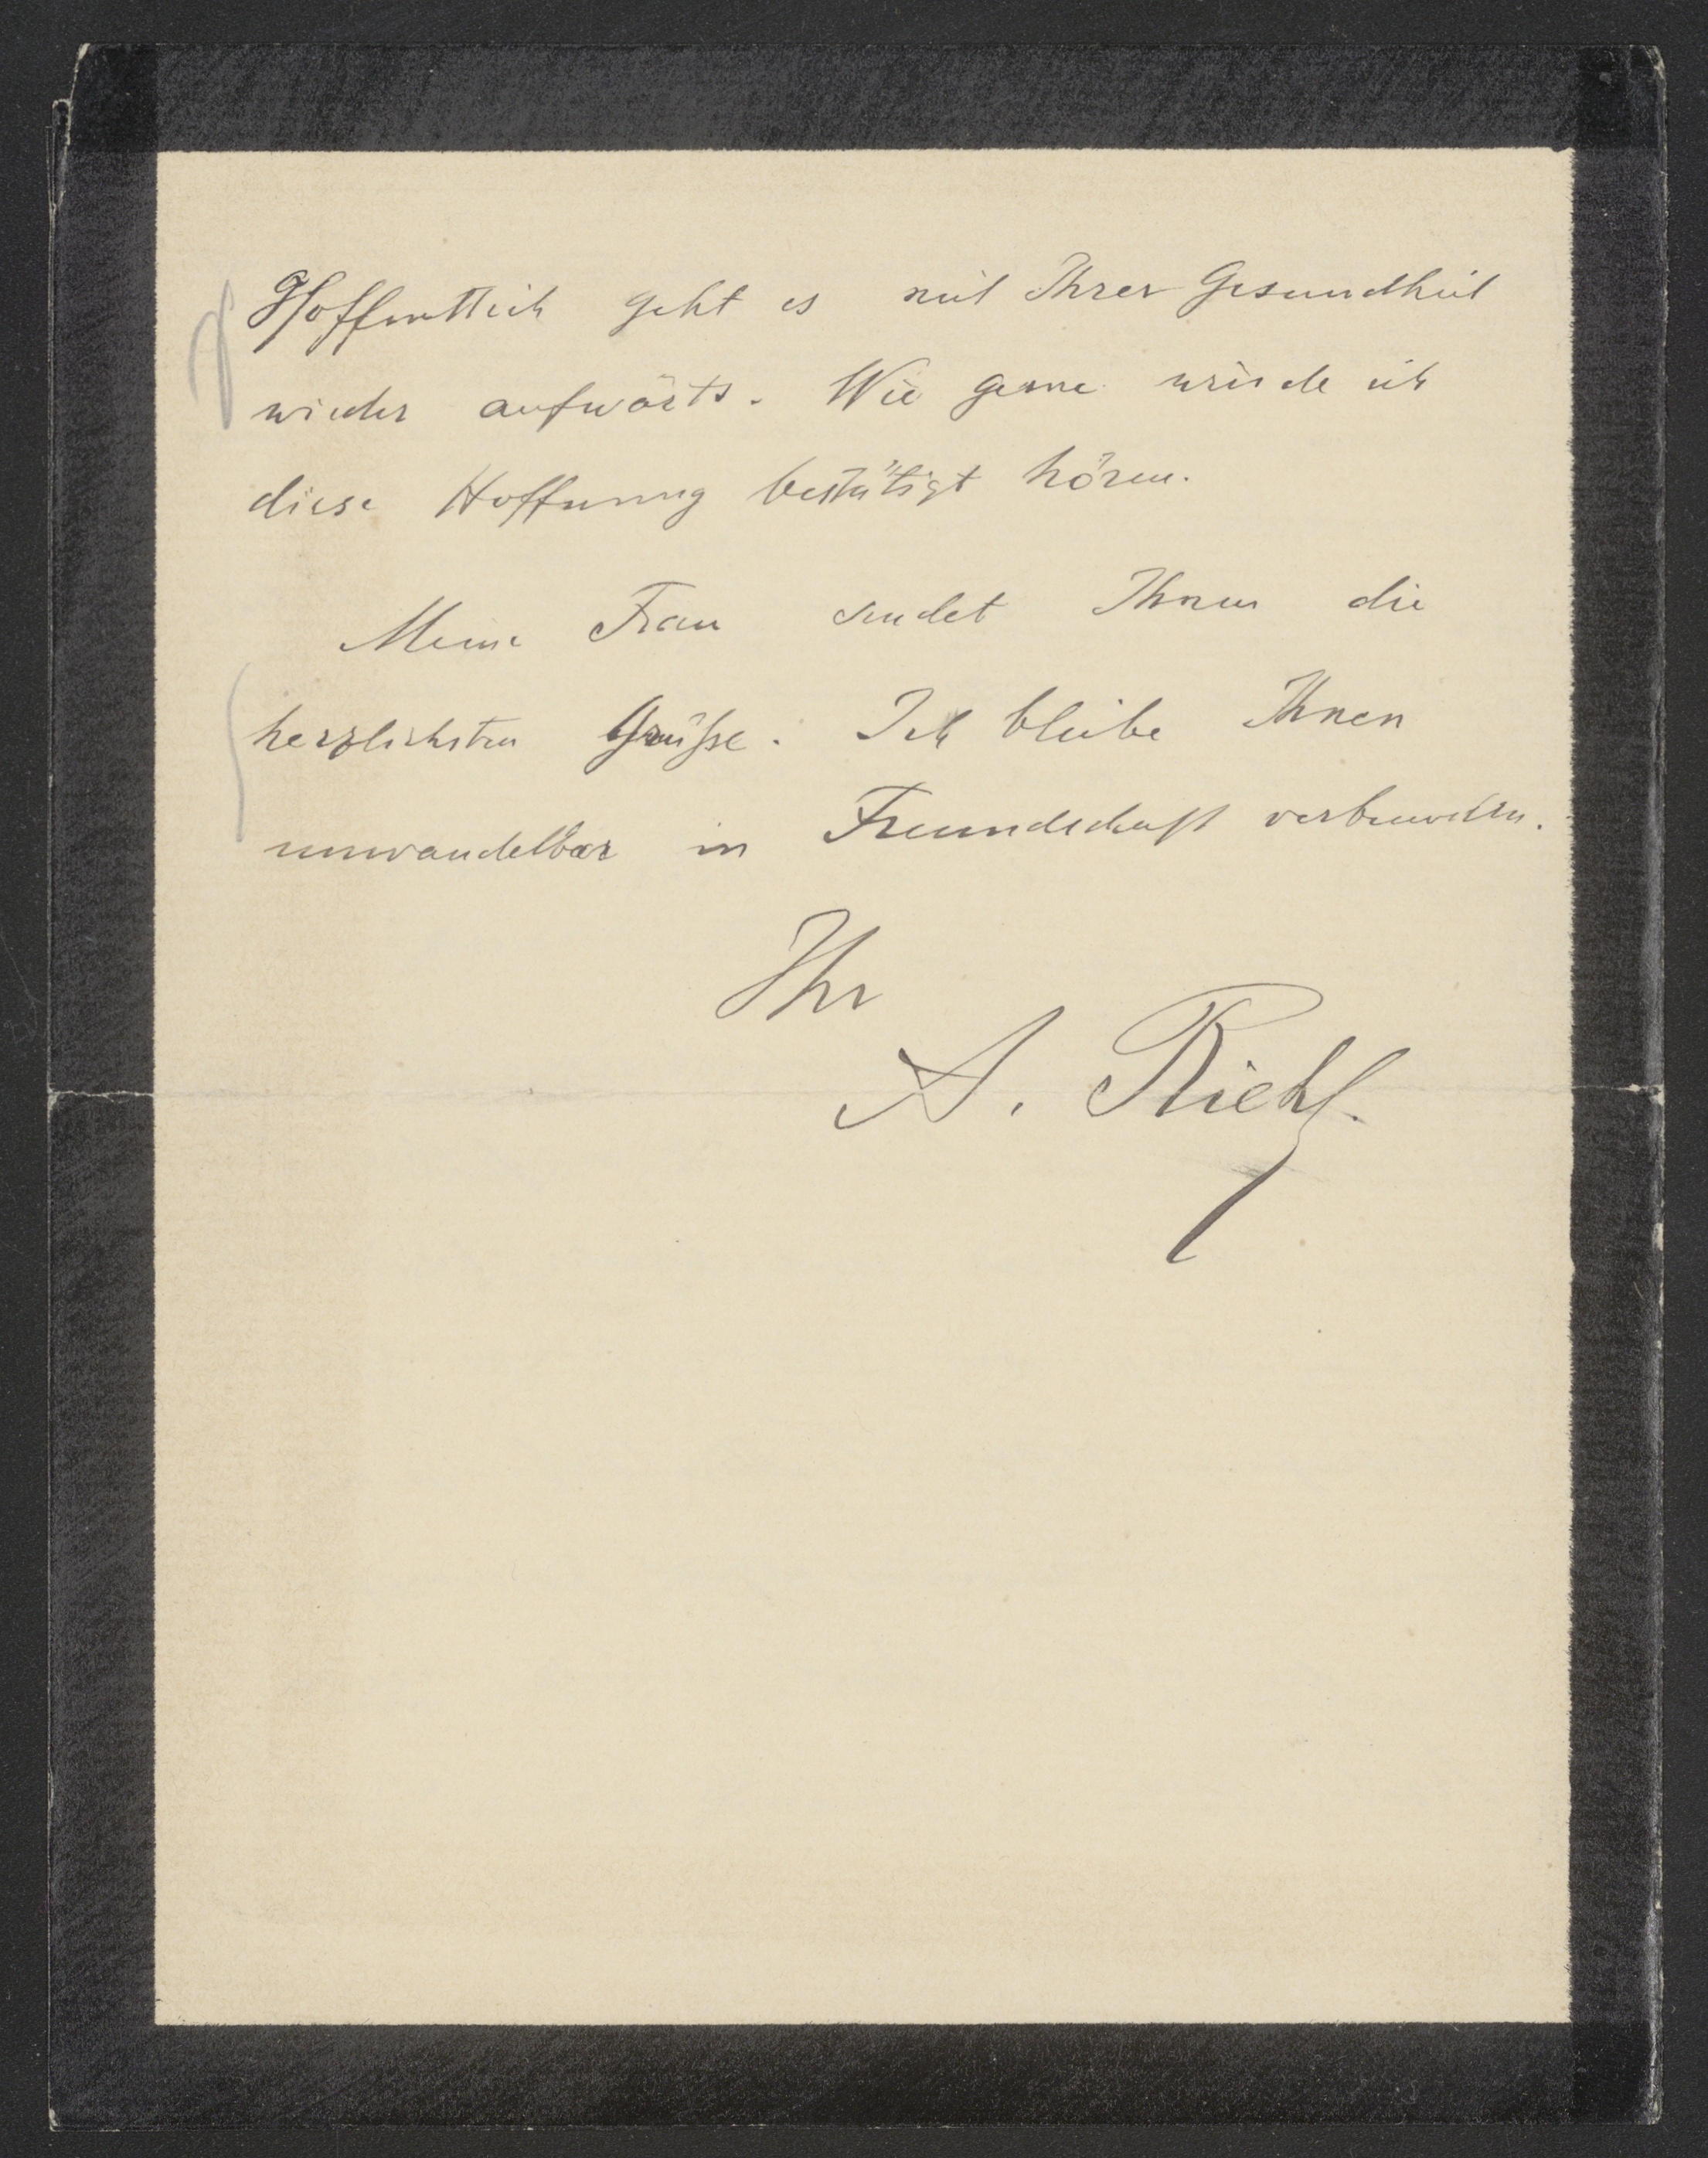 Hoffentlich geht es mit Ihrer Gesundheit
wieder aufwärts. Wie gerne würde ich
diese Hoffnung bestätigt hören.
Meine Frau sendet Ihnen die
herzlichsten Grüße. Ich bleibe Ihnen
unwandelbar in Freundschaft verbunden.
Ihr
A. Riehl.